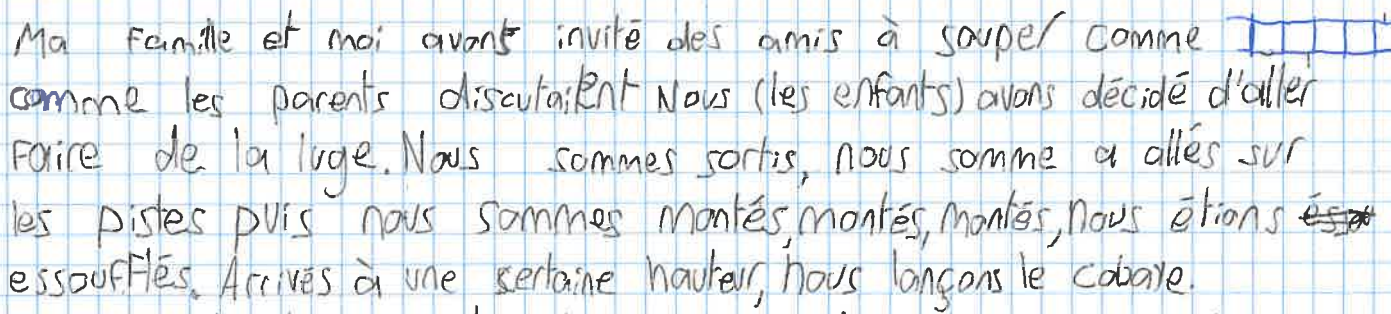 Ma famille et moi avons invité des amis à souper comme
comme les parents discutaient Nous (les enfants) avons décidé d'aller
faire de la luge. Nous sommes sortis, nous somme a allés sur
les pistes puis nous sommes montés, montés, montés, nous étions
essoufflés. Arrivés à une sertaine hauteur, nous lançons le cobaye.